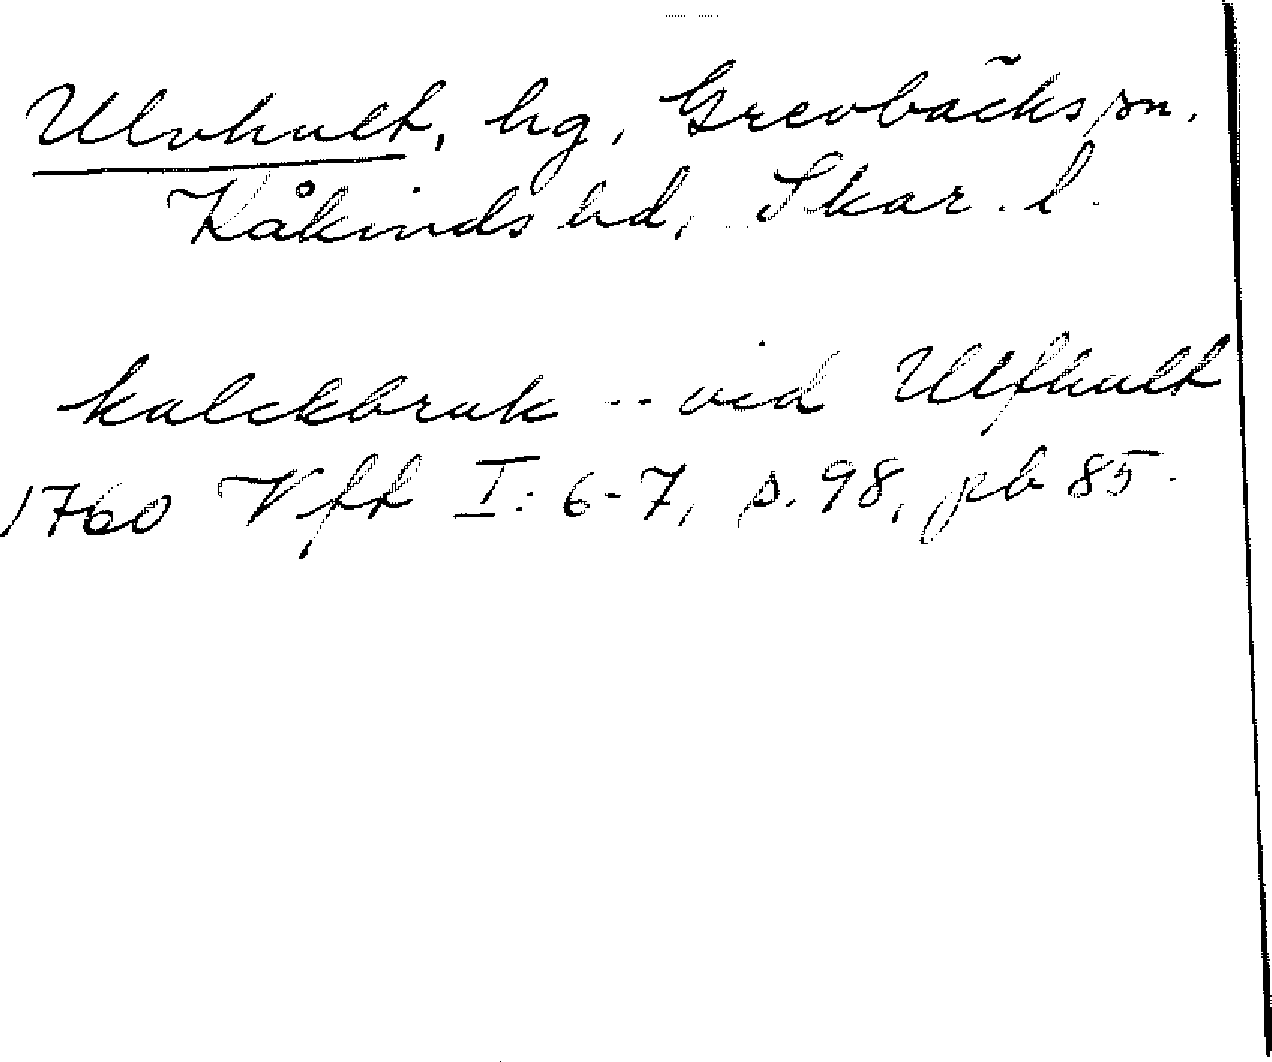 Ulvhult, hg, Grevbäcks sn.
Kåkinds hd, Skar. l.
kalckbruk -- vid Ulfhult
1760 Vft I: 6-7, s. 98, pb 85.